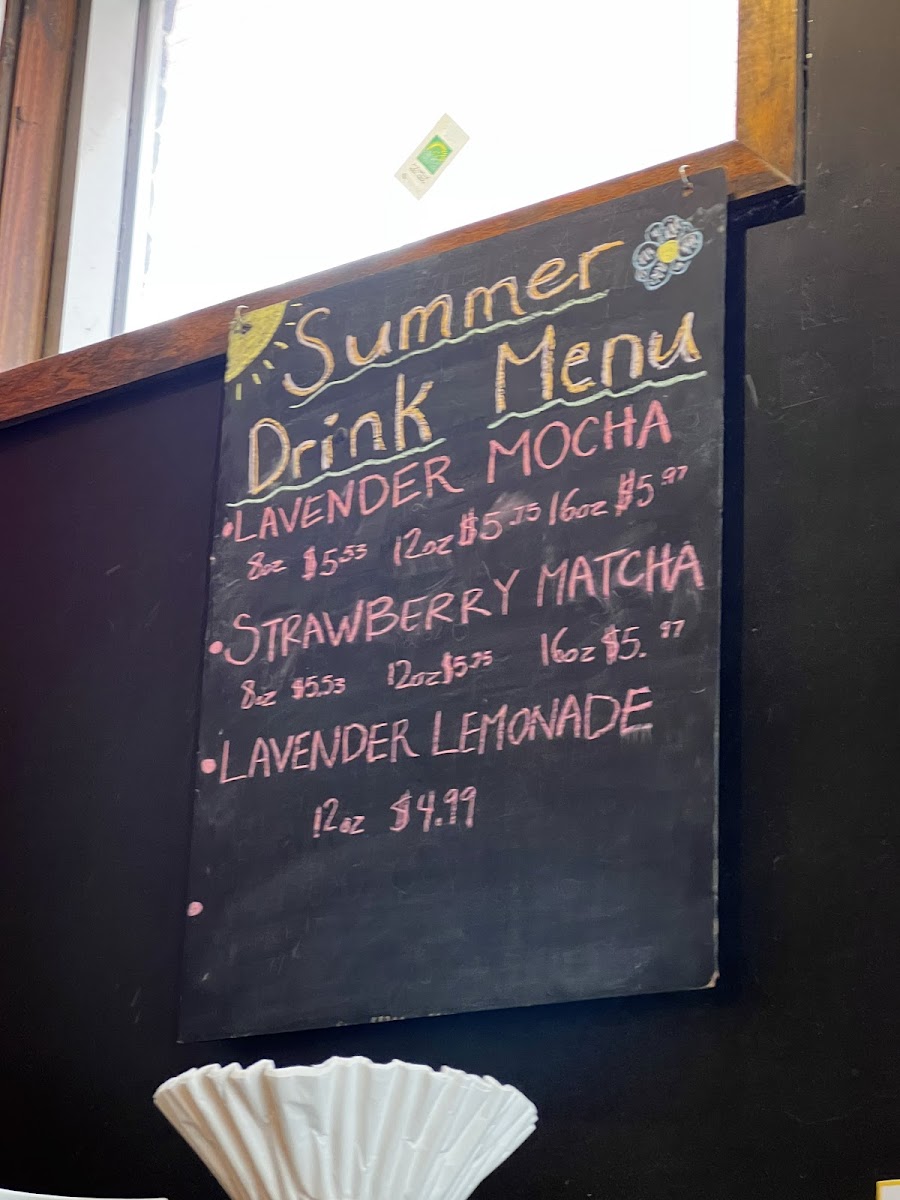 Summer
Drink Menu
•LAVENDER MOCHA
8oz $5.53 12oz $5.75 16oz $5.97
•STRAWBERRY MATCHA
8oz $5.53 12oz $5.75 16oz $5.97
•LAVENDER LEMONADE
12oz $4.99
•